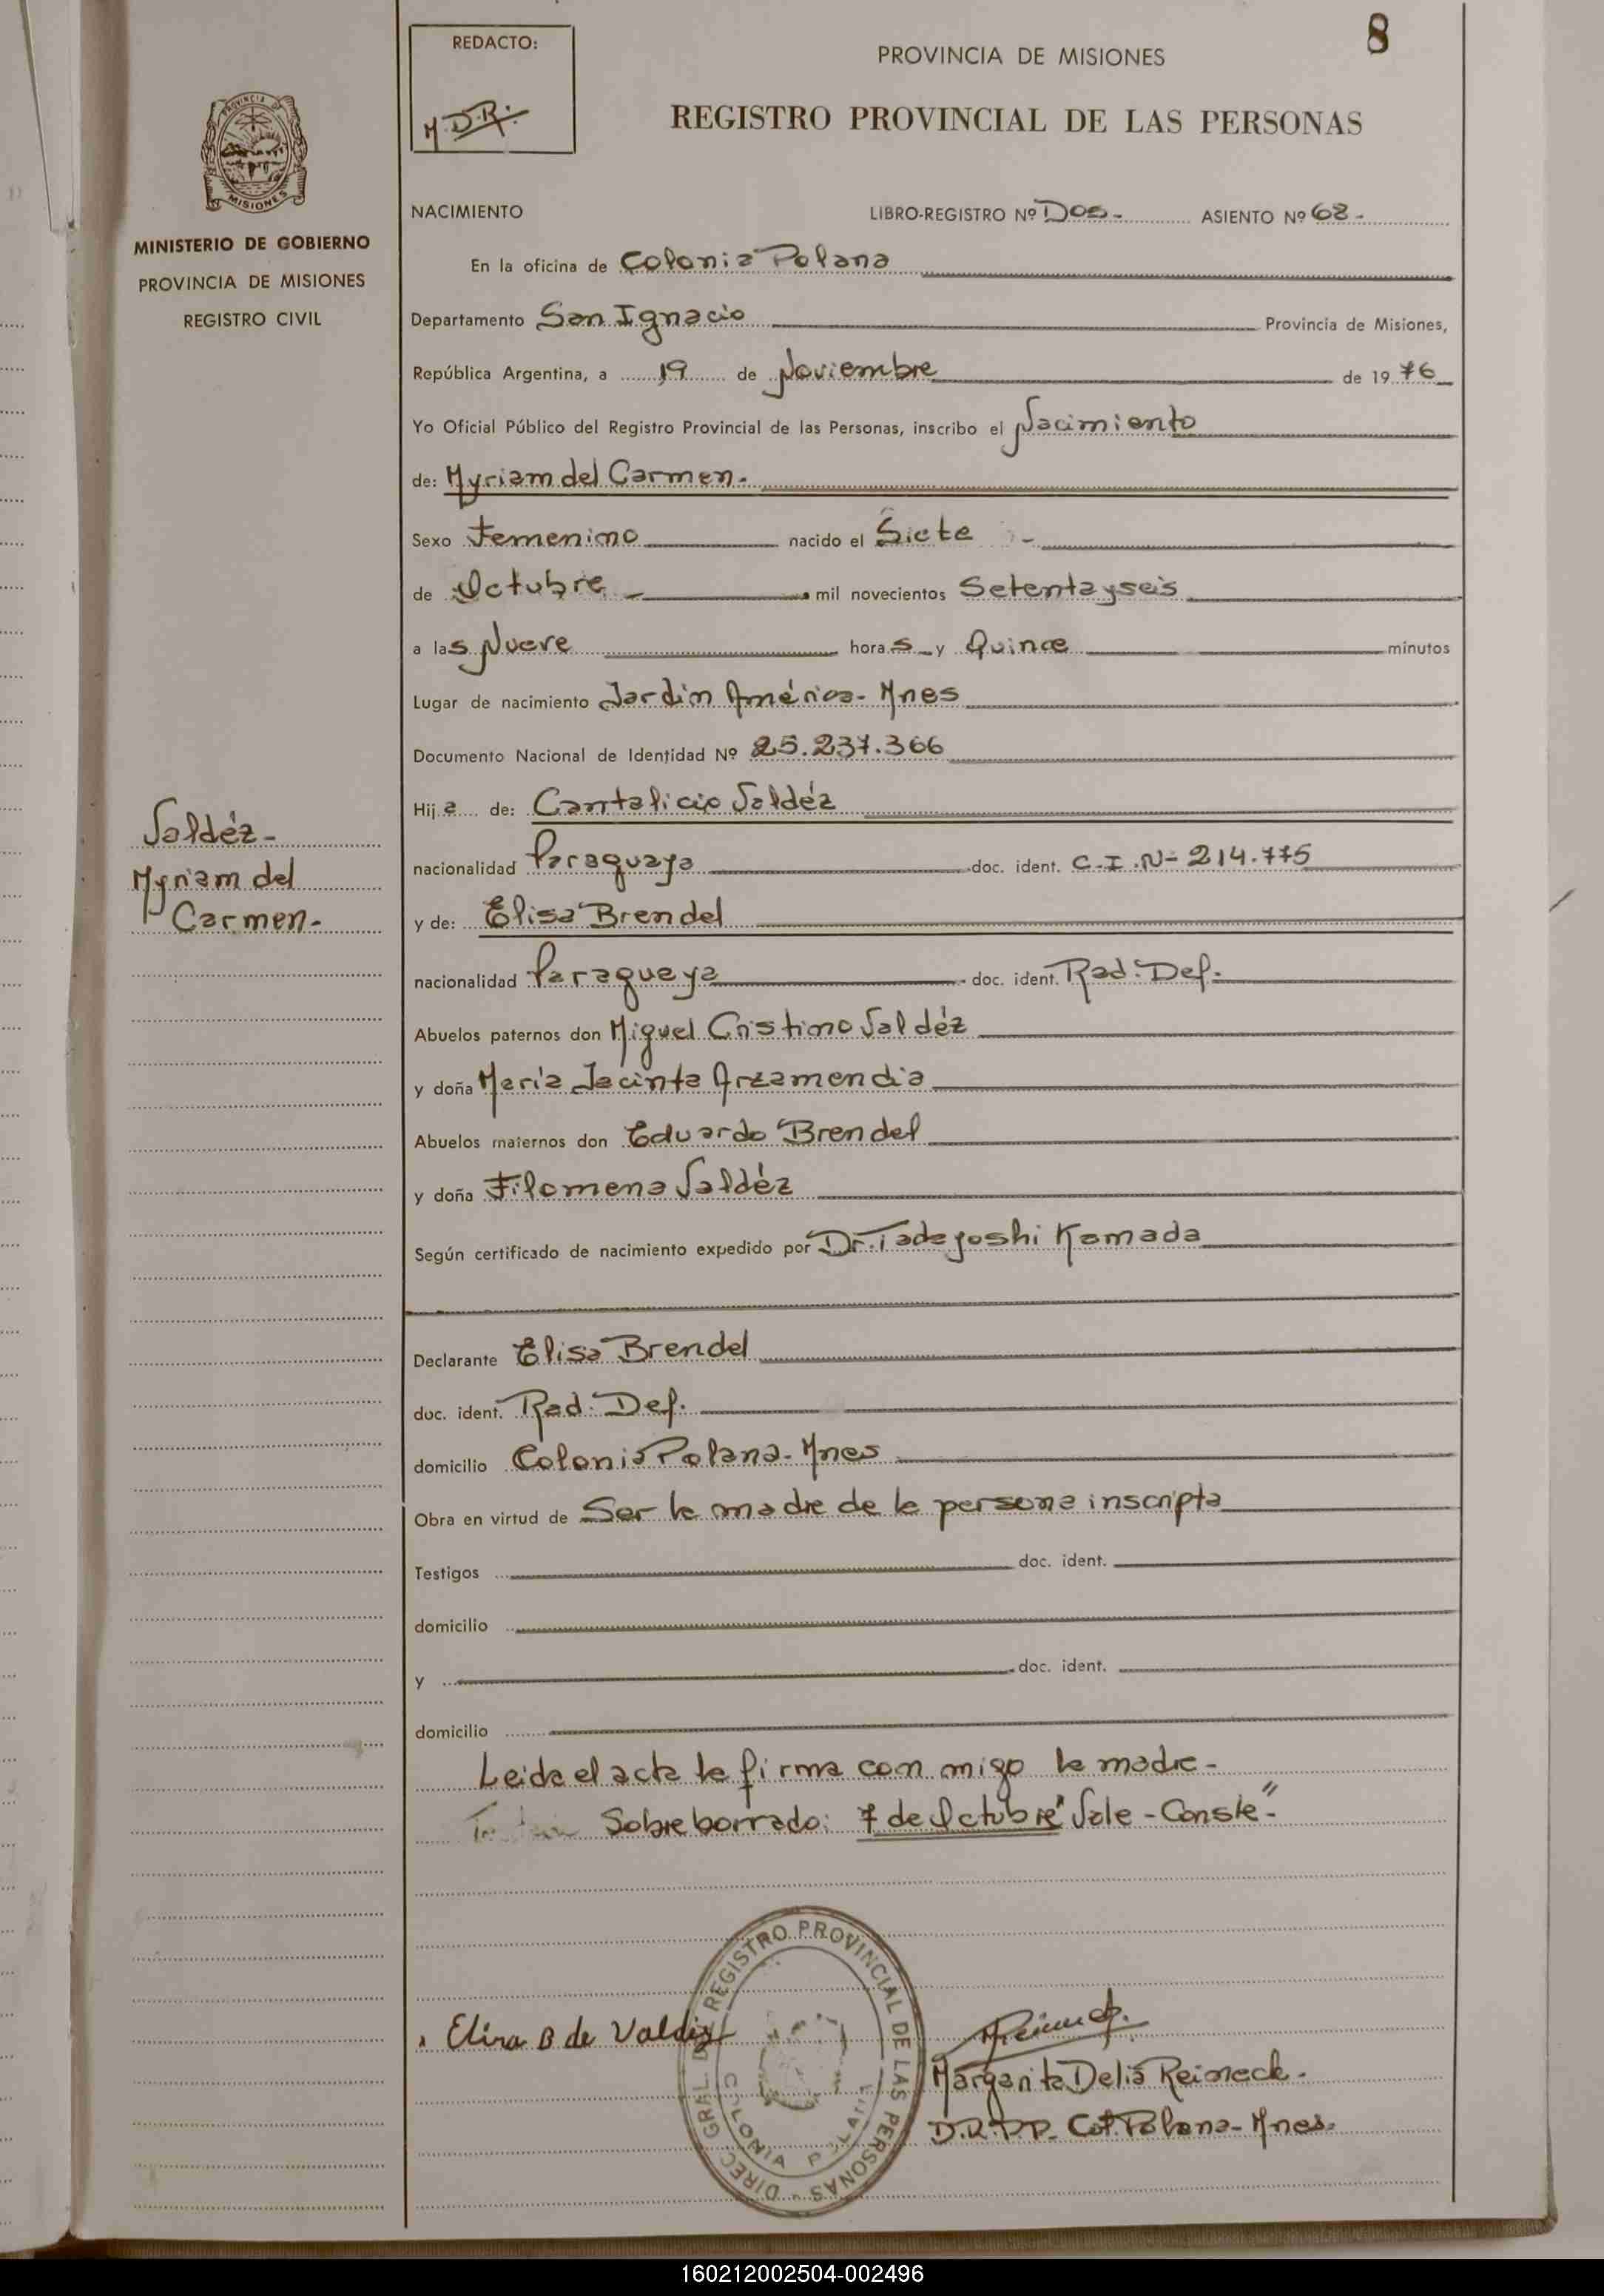 8
REDACTO:
M.D.R.
PROVINCIA DE MISIONES
REGISTRO PROVINCIAL DE LAS PERSONAS
PROVINCIA DE MISIONES
MINISTERIO DE GOBIERNO
PROVINCIA DE MISIONES
REGISTRO CIVIL
NACIMIENTO LIBRO-REGISTRO Nº Dos.- ASIENTO Nº 68.-
En la oficina de Colonia Polana
Departamento San Ignacio Provincia de Misiones,
República Argentina, a 19 de Noviembre de 19 76
Yo Oficial Público del Registro Provincial de las Personas, inscribo el Nacimiento
de: Myriam del Carmen.
Sexo Femenino nacido el Siete -
de Octubre mil novecientos Setenta y seis
a las Nueve horas y Quince minutos
Lugar de nacimiento Jardin América- Mnes
Documento Nacional de Identidad Nº 25.237.366
Hija de: Cantalicio Valdéz
nacionalidad Paraguaya doc. ident. C.I.N- 214.775
y de: Elisa Brendel
nacionalidad Paraguaya doc. ident. Rad. Def.
Abuelos paternos don Miguel Cristino Valdéz
y doña María Jacinta Arzamendia
Abuelos maternos don Eduardo Brendel
y doña Filomena Valdéz
Según certificado de nacimiento expedido por Dr. Tadayoshi Kamada
Declarante Elisa Brendel
doc. ident. Rad. Def.
domicilio Colonia Polana- Mnes
Obra en virtud de Ser la madre de la persona inscripta
Testigos doc. ident.
domicilio
y doc. ident.
domicilio
Leida el acta la firma con migo la madre-
Sobre borrado: 7 de Octubre" Vale - Conste"-
Valdéz-
Myriam del
Carmen-
Elisa B de Valdéz
DIREC. GRAL. DE REGISTRO PROVINCIAL DE LAS PERSONAS -
COLONIA POLANA
Margarita Delia Reineck.
D.R.P.P. Col. Polana- Mnes.
160212002504-002496